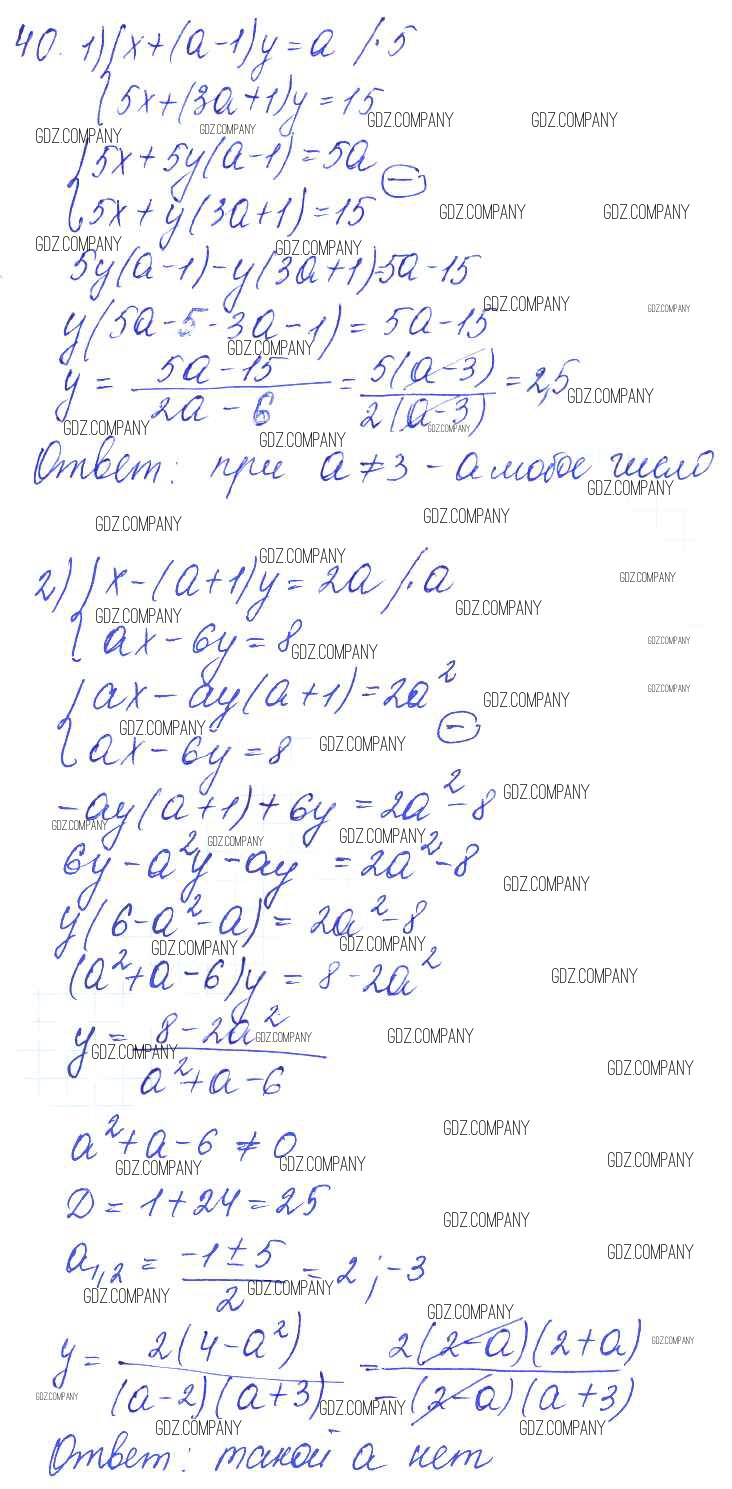 40. 1) { x + (a-1)y = a /·5
{ 5x + (3a+1)y = 15
GDZ.COMPANY GDZ.COMPANY GDZ.COMPANY GDZ.COMPANY
{ 5x + 5y(a-1) = 5a
{ 5x + y(3a+1) = 15 ⊖
GDZ.COMPANY GDZ.COMPANY
GDZ.COMPANY GDZ.COMPANY
5y(a-1) - y(3a+1) = 5a - 15
y(5a - 5 - 3a - 1) = 5a - 15
GDZ.COMPANY GDZ.COMPANY
GDZ.COMPANY
y = (5a - 15)/(2a - 6) = 5(a-3)/2(a-3) = 2,5
GDZ.COMPANY
GDZ.COMPANY GDZ.COMPANY GDZ.COMPANY
Ответ: при a ≠ 3 - a любое число
GDZ.COMPANY
GDZ.COMPANY GDZ.COMPANY
GDZ.COMPANY GDZ.COMPANY
2) { x - (a+1)y = 2a /·a
GDZ.COMPANY GDZ.COMPANY
{ ax - 6y = 8
GDZ.COMPANY GDZ.COMPANY
{ ax - ay(a+1) = 2a²
GDZ.COMPANY GDZ.COMPANY
{ ax - 6y = 8 ⊖
GDZ.COMPANY GDZ.COMPANY
-ay(a+1) + 6y = 2a² - 8
GDZ.COMPANY
GDZ.COMPANY GDZ.COMPANY GDZ.COMPANY
6y - a²y - ay = 2a² - 8
GDZ.COMPANY
y(6 - a² - a) = 2a² - 8
GDZ.COMPANY GDZ.COMPANY
(a² + a - 6)y = 8 - 2a²
GDZ.COMPANY
y = (8 - 2a²)/(a² + a - 6)
GDZ.COMPANY GDZ.COMPANY
GDZ.COMPANY GDZ.COMPANY
a² + a - 6 ≠ 0
GDZ.COMPANY
GDZ.COMPANY GDZ.COMPANY GDZ.COMPANY
D = 1 + 24 = 25
GDZ.COMPANY
a₁,₂ = (-1 ± 5)/2 = 2; -3
GDZ.COMPANY
GDZ.COMPANY GDZ.COMPANY
GDZ.COMPANY
y = 2(4 - a²)/(a-2)(a+3) = 2(2-a)(2+a)/-(2-a)(a+3)
GDZ.COMPANY
GDZ.COMPANY GDZ.COMPANY
GDZ.COMPANY GDZ.COMPANY
Ответ: такой a нет